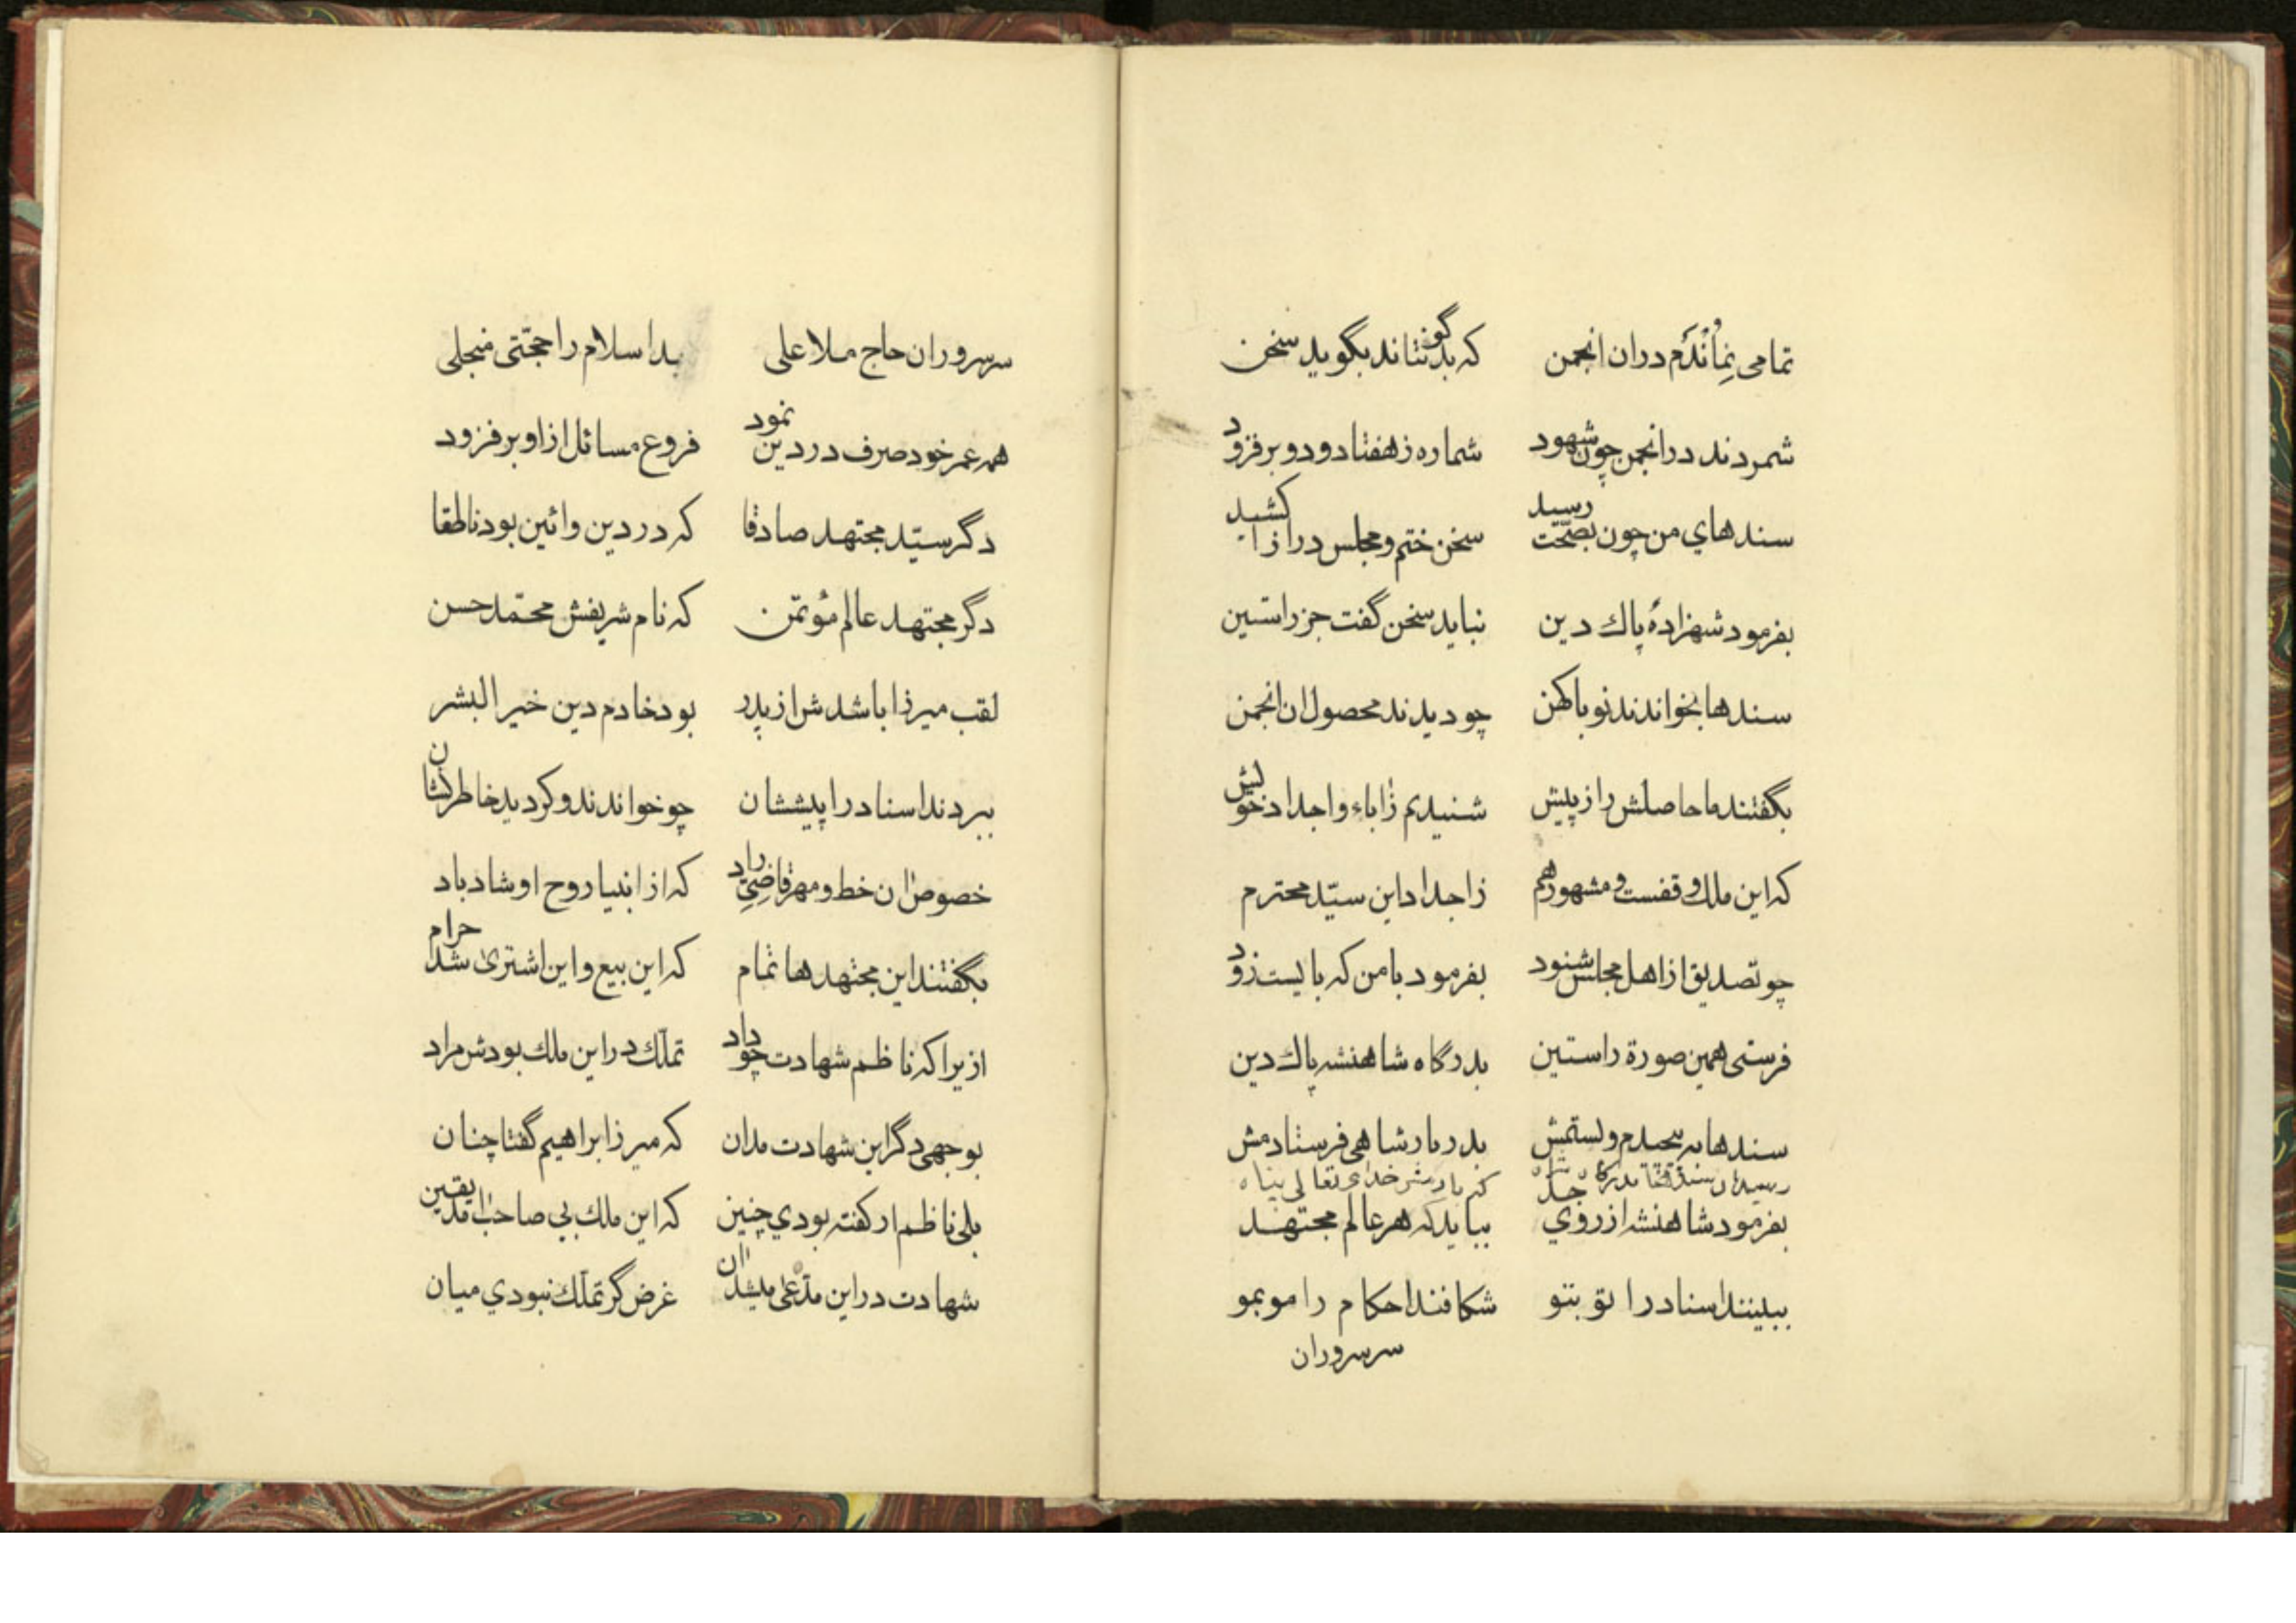 تمامی نماندم دران انجمن که بدگونتاند بگوید سخن
شمردند در انجمن چون شهود شماره ز هفتاد و دو بر فزود
سندهای من چون بصحّت رسید سخن ختم و مجلس درازا کشید
بفرمود شهزادهٔ پاك دین نباید سخن گفت جز راستین
سندها بخواندند نو با کهن چو دیدند محصول ان انجمن
بگفتند ما حاصلش را ز پیش شنیدیم ز اباء و اجداد خویش
که این ملك وقفست و مشهور هم ز اجداد این سیّد محترم
چو تصدیق از اهل مجلس شنود بفرمود با من که بایست زود
فرستی همین صورة راستین بدرگاه شاهنشه پاك دین
سندها به پیچیدم و بستمش بدربار شاهی فرستادمش
رسید ان سندها بدرگاه شاه که بادش خدای تعالی پناه
بفرمود شاهنشه از روی جدّ بباید که هر عالم مجتهد
ببینند اسناد را تو بتو شکافند احکام را مو بمو
سر سروران
سر سروران حاج ملا علی بد اسلام را حجّتی منجلی
همه عمر خود صرف در دین نمود فروع مسائل از او بر فزود
دگر سیّد مجتهد صادقا که در دین و ائین بود ناطقا
دگر مجتهد عالم مؤتمن که نام شریفش محمّد حسن
لقب میرزا باشدش از پدر بود خادم دین خیر البشر
ببردند اسناد را پیششان چو خواندند و کردید خاطر نشان
خصوص ان خط و مهر قاضیّ راد که از انبیا روح او شاد باد
بگفتند این مجتهدها تمام که این بیع و این اشتری شد حرام
ازیرا که ناظم شهادت چو داد تملّك در این ملك بودش مراد
بوجهی دگر این شهادت بدان که میرزا براهیم گفتا چنان
بلی ناظم ار کفته بودی چنین که این ملك بی صاحب امد یقین
شهادت در این مدّعی میشد ان غرض گر تملّك نبودی میان